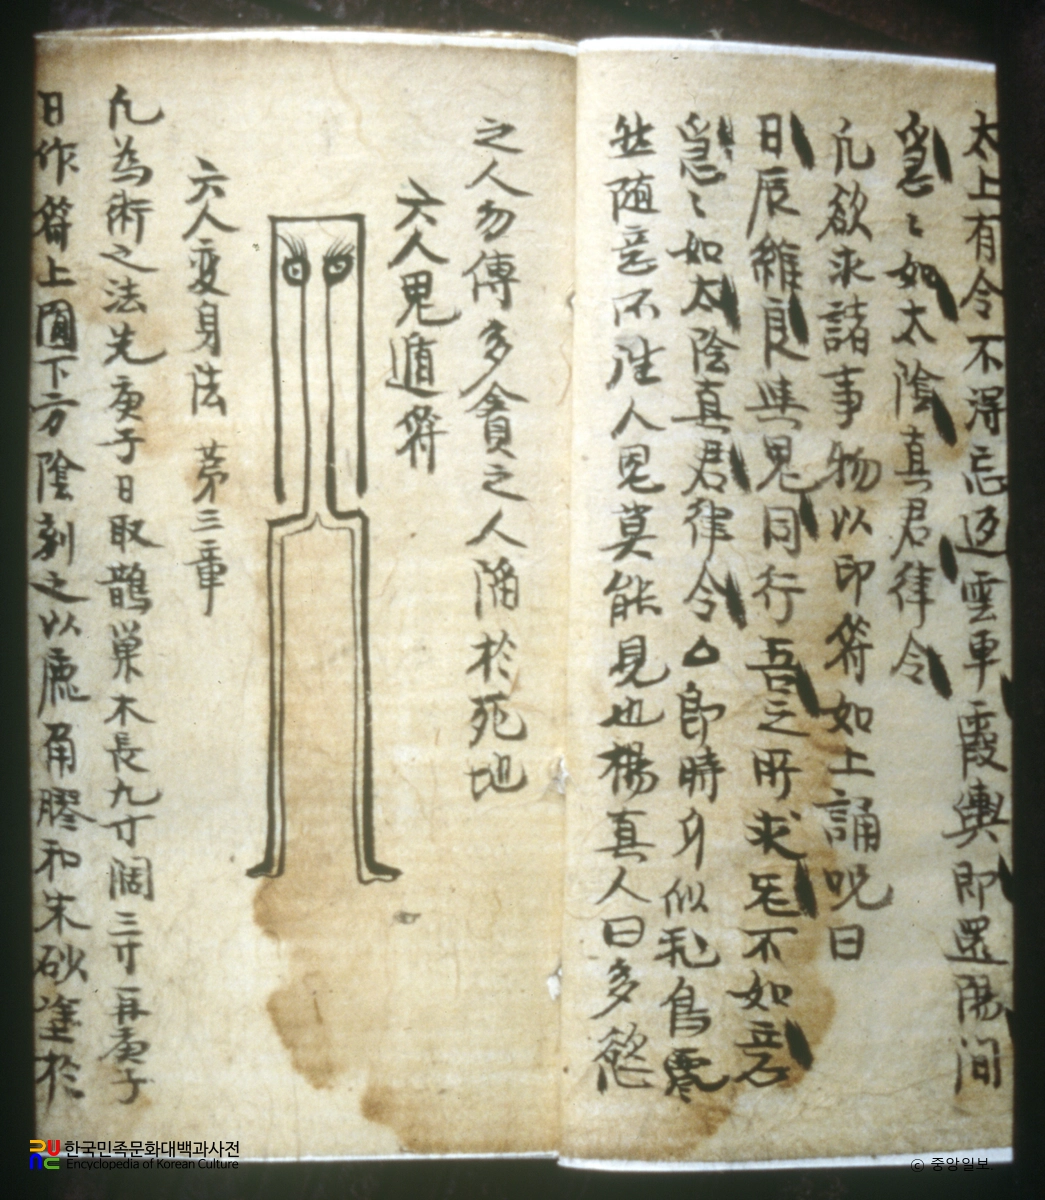 太上有令不得忘迈雲車霞輿即還陽间
急〻如太陰真君律令
凢欲求諸事物以印符如上誦呪曰
日辰維良與鬼同行吾之所求无不如意
急〻如太陰真君律令△即時身似飛鳥
然随意不陞人鬼莫能見也楊真人曰多慾
之人勿傳多貪之人陷於死地
六人鬼遁符
六人変身法 苐三章
凢為術之法先庚子日取鵲巢木長九寸闊三寸再庚子
日作符上圓下方陰刻之以鹿角膠和朱砂塗於
한국민족문화대백과사전
Encyclopedia of Korean Culture
© 중앙일보